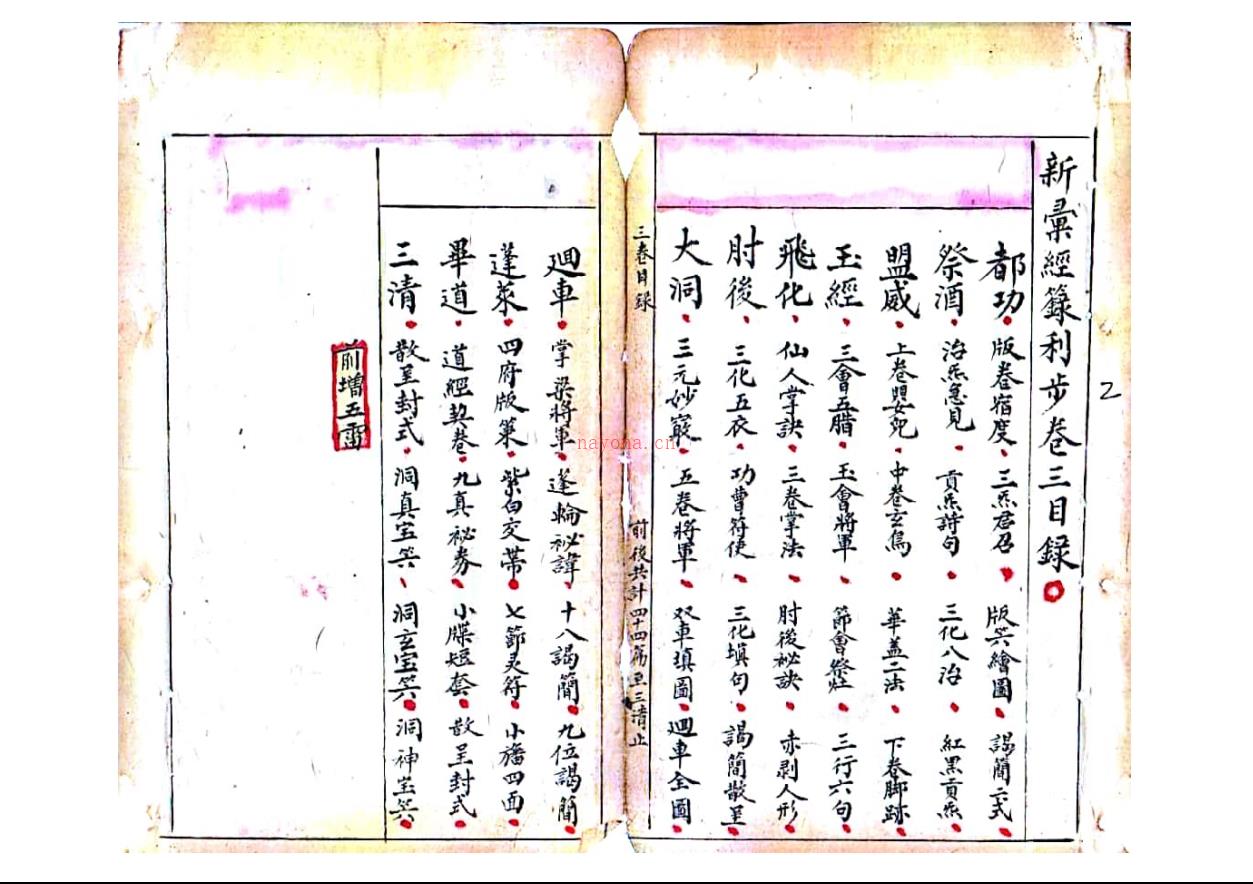 新彙經籙利步卷三目錄
都功 版卷宿度 三炁君召 版笶繪圖 謁簡二式
祭酒 治炁急見 貢炁詩句 三化八治 紅黑貢炁
盟威 上卷嬰兒 中卷玄鳥 華盖二法 下卷脚跡
玉經 三會五腊 玉會將軍 節會祭壯 三行六句
飛化 仙人掌訣 三卷掌法 肘後祕訣 赤剥人形
肘後 三化五衣 功曹符使 三化填句 謁簡散呈
大洞 三元妙竅 五卷將軍 双車填圖 廻車全圖
三卷目録
前後共計四十四篇至三清止
廻車 掌梁將軍 逢輪祕諱 十八謁簡 九位謁簡
蓬萊 四府版策 紫白交带 七節灵符 小旛四面
畢道 道經契卷 九真祕券 小牒短套 散呈封式
三清 散呈封式 洞真宝笶 洞玄宝笶 洞神宝笶
前增五雷
2
nayona.cn